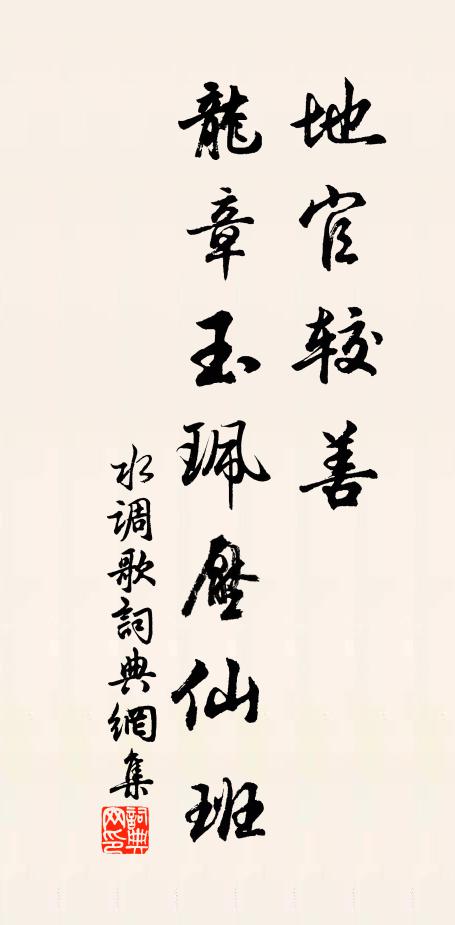 地官较善
龍章玉珮壓仙班
水调歌詞典網集
詞典網印